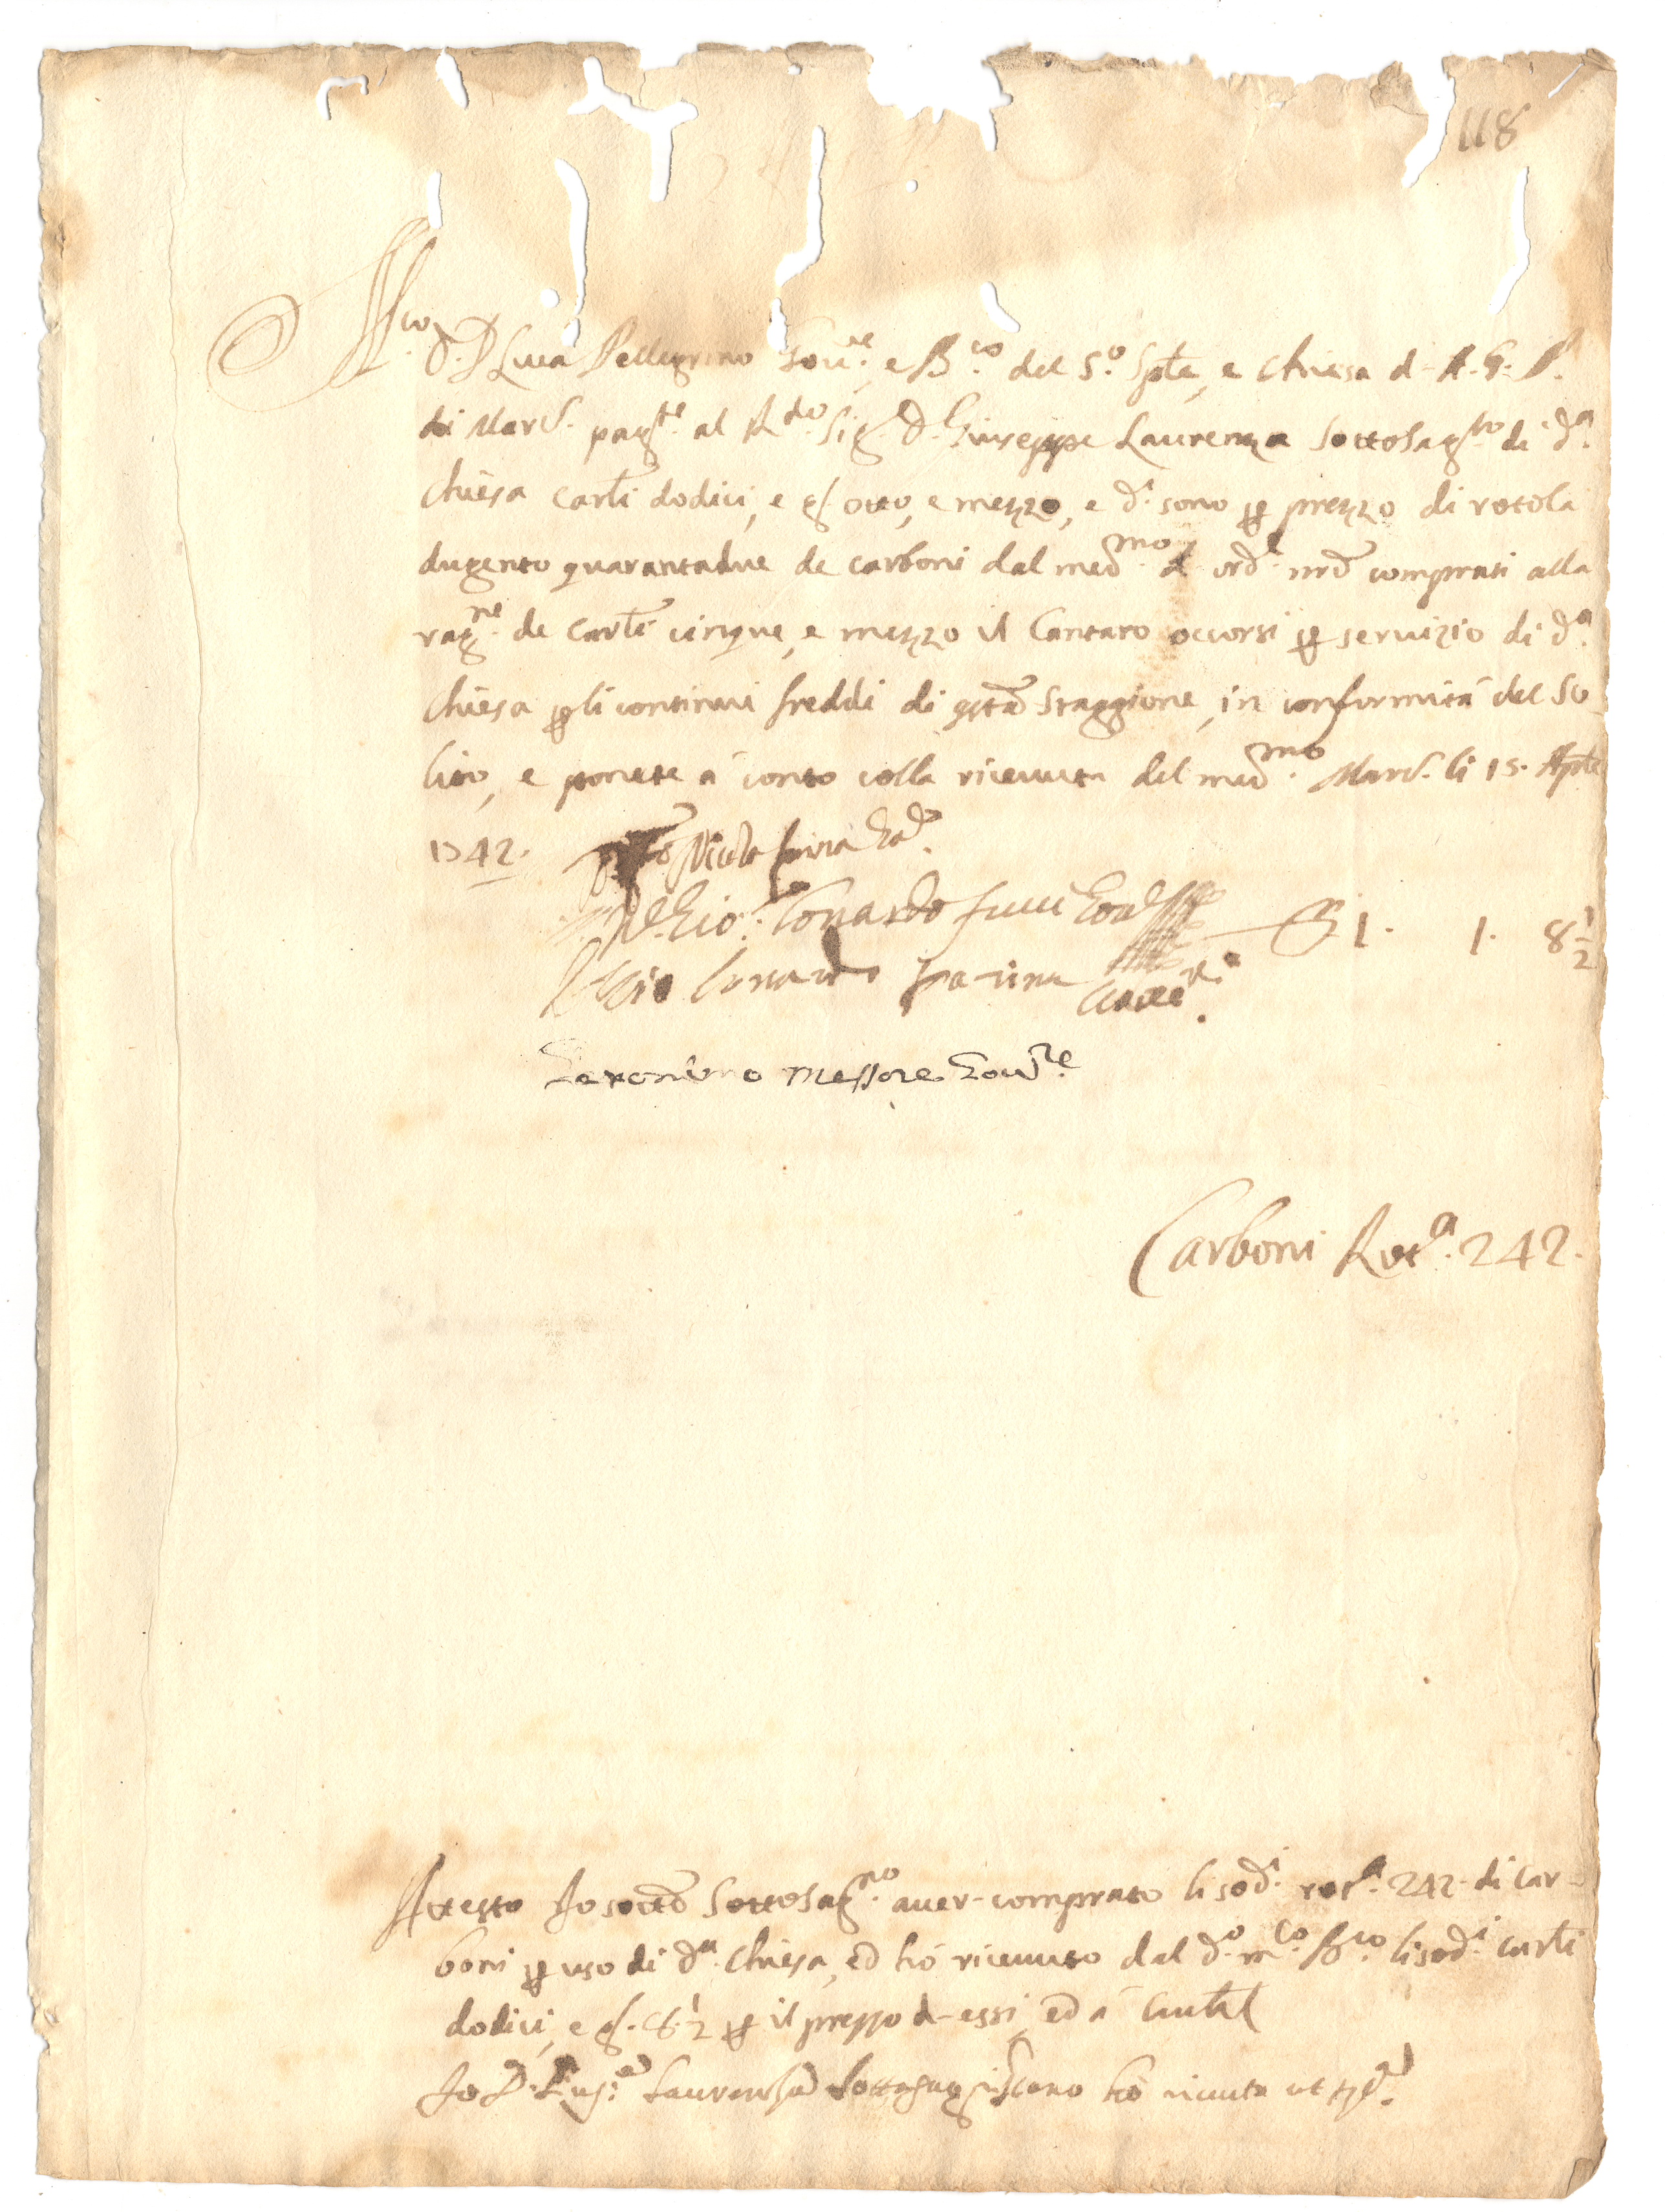 118
M.co
D. D. Luca Pellegrino Gov.re, e B.co del S.o Sple, e Chiesa d- A. G. P.
di Marc. pag.te al R.do Sig. D. Giuseppe Laurenza Sottosag.no di d.a
Chiesa carli dodici, e g. otto, e mezzo, e d.i sono p prezzo di rotola
dugento quarantadue de carboni dal med.mo d' ord. nro comprati alla
rag.ne de carli cinque, e mezzo il Cantaro occorsi p servizio di d.a
Chiesa p li continui freddi di qsta Staggione, in conformità del So
lito, e ponete a' conto colla ricevuta del med.mo Marc. li 15. Aple
1742.
1. 1. 8 1/2
Geronimo Messore Gov.re
Carboni Rot.a 242.
Attesto Io sotto Sottosag.no aver- comprato li sod.i rot.a 242. di Car-
boni p uso di d.a Chiesa, ed hò ricevuto dal d.o m.co B.co li sod.i carli
dodici, e g. 8 1/2 p il prezzo d- essi, ed a'
Io D. Laurenza Sottosagristano hò